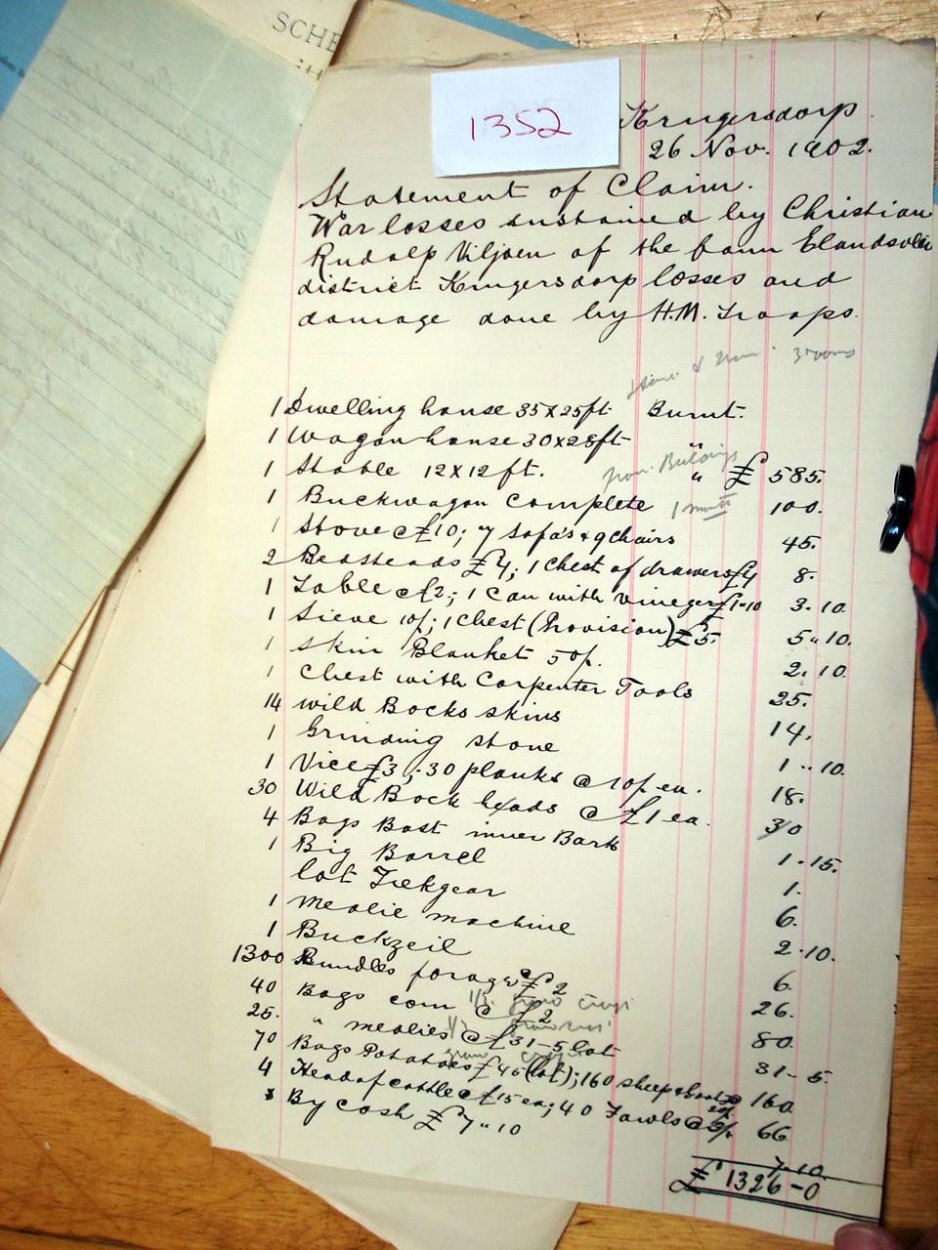 SCHE
1352
Krugersdorp
26 Nov. 1902.
Statement of Claim.
War losses sustained by Christian
Rudolp Viljoen of the farm Elandsvlei
district Krugersdorp losses and
damage done by H.M. Troops.
3 rooms
1 Dwelling house 35 x 25 ft. Burnt.
1 Wagon house 30 x 28 ft "
1 Stable 12 x 12 ft. " £ 585.
1 Buckwagon complete 100.
1 Stove @ £10; 7 Sofa's & 9 chairs 45.
2 Bedsteads £4; 1 Chest of drawers £4 8.
1 Table @ £2; 1 Can with vineger £1-10 3.10.
1 Sieve 10/; 1 Chest (Provision) £5. 5"10.
1 Skin Blanket 50/. 2.10.
1 Chest with Carpenter Tools 25.
14 wild Bocks skins 14.
1 Grinding stone 1"10.
1 Vice £3; 30 planks @ 10/. ea. 18.
30 Wild Bock heads @ £1 ea. 30
4 Bags Bast inner Bark 1.15.
1 Big Barrel 1.
lot Trekgear 6.
1 mealie machine 2.10.
1 Buckzeil 6.
1300 Bundles forage @ £2 26.
40 Bags corn @ £2 80
25. " mealies @ £31-5 lot 31-5.
70 Bags Potatoes £45 (lot); 160 sheep 160
4 Head of cattle @ £15 ea; 40 Fowls @ 3/. 66
By cash £7"10 7.10.
£ 1326-0